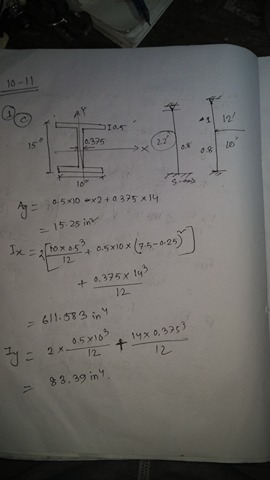 10-11
1 C
Y
I 0.5"
0.375
X
15"
10"
22'
0.8
12'
0.8
10'
Ag = 0.5x10 x2 + 0.375 x 14
= 15.25 in²
Ix = 2[10 x 0.5³/12 + 0.5x10 x (7.5-0.25)²]
+ 0.375 x 14³/12
= 611.583 in⁴
Iy = 2 x 0.5x10³/12 + 14x0.375³/12
= 83.39 in⁴.